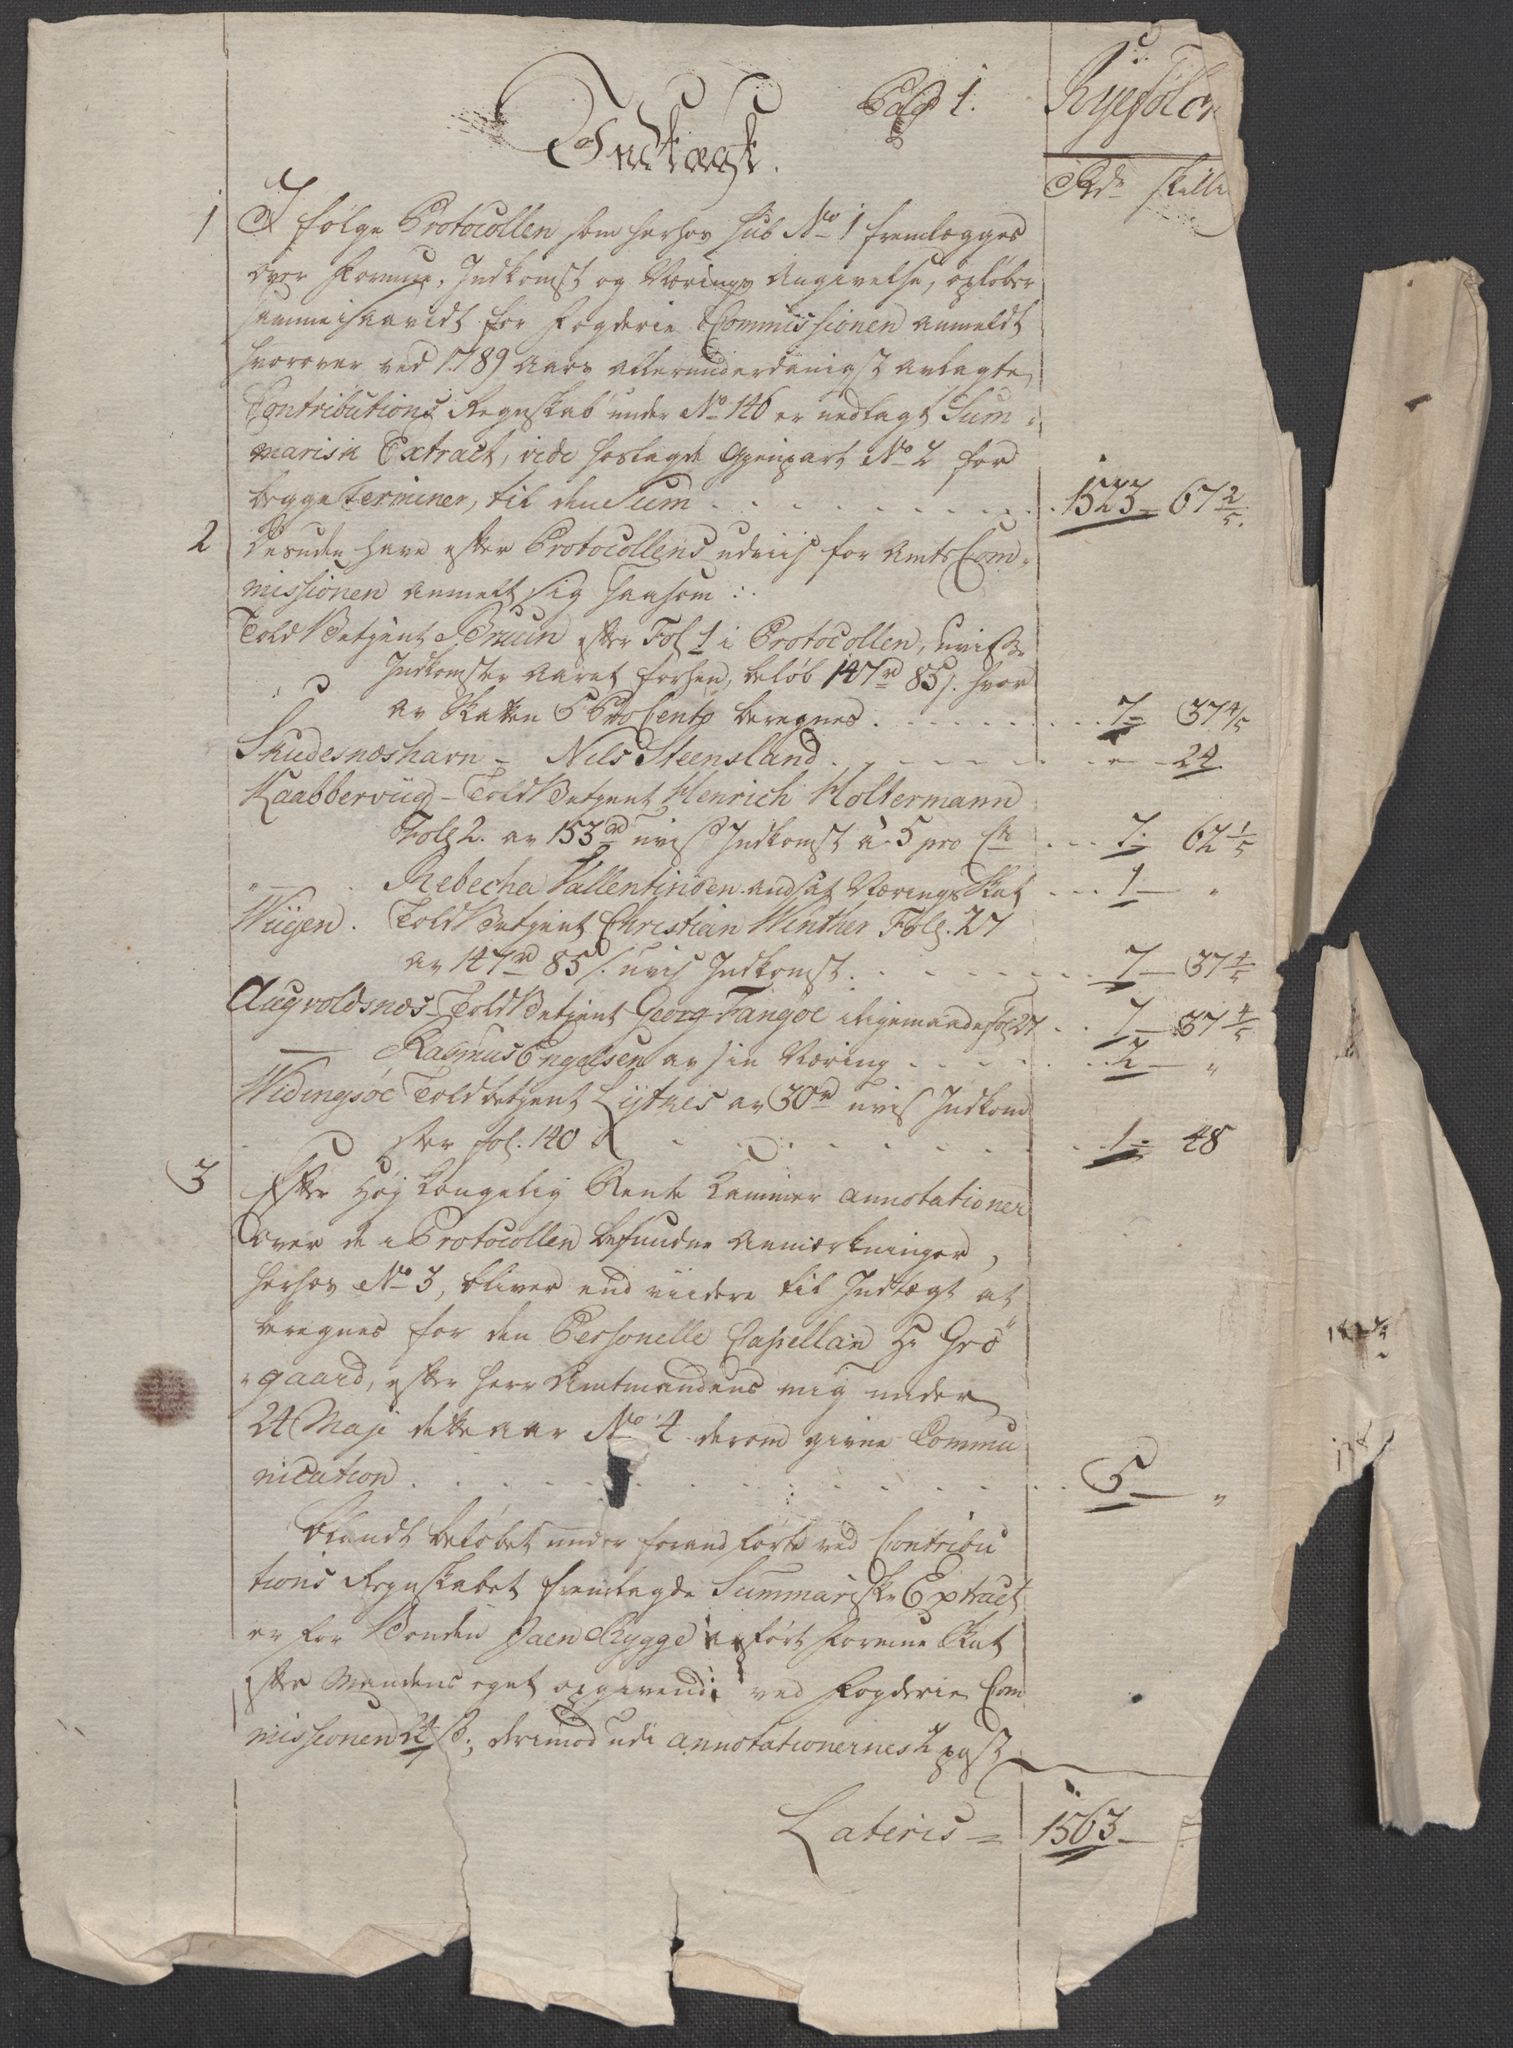 Pag 1.
Ryefølcke
Indtægt.
Rdr skill
1 I følge Protocollen som herhos sub No 1 fremlægges
over Formue, Indkomst og Nærings Angivelse, opløber
samme isaavidt for Fogderie Commissionen anmeldt
hvorover ved 1789 Aars allerunderdanigst avlagte
Contributions Regnskab under No 146 er nedlagt Sum-
marisk Extract, vide hoslagde Gjenpart No 2 for
begge Terminer, til den Sum . . . 1523 67 2/5.
2 Desuden have efter Protocollens udviis for Amts Com-
missionen anmelt sig saasom :
Told Betjent Bruun efter Fol 1 i Protocollen, uvisse
Indkomster Aaret forhen, beløb 147 rd 85 s. hvor
av Skatten 5 ProCento beregnes . . . 7 37 4/5
Skudesnæshavn - Nils Steensland . . . " 24
Kaabberviig - Told Betjent Henrich Holtermann
Fol 2. av 153 rd uvis Indkomst à 5 pro Ct . . . 7 62 1/5
" Rebecha Vallentinsen andsat Nærings Skat . . . 1 "
Wiigen. Told Betjent Christian Winther Fol. 27
av 147 rd 85 s. uvis Indkomst . . . 7 37 4/5
Augvoldsnæs - Told Betjent Georg Fangøe iligemaade Fol 27 . . 7 37 4/5
— Rasmus Engelsen av sin Næring . . . 2 "
Widingsøe Told betjent Lytkes av 30 rd uvis Indkom
ster fol. 140 . . . 1 48
3 Efter Høj Kongelig Rente Kammer annotationer
over de i Protocollen befundne Anmærkninger,
herhos No 3, bliver end viidere til Indtægt at
beregnes for den Personelle Capellan Hr Grö
-gaard, efter Herr Amtmandens mig under
24 Maji dette aar No 4 derom givne Commu
nication . . . 5 "
Blandt beløbet under foranførte ved Contribu
tions Regnskabet fremlagde Summariske Extract
er for Bonden Jaen Rygge anført Formue Skat
efter Mandens eget opgivende ved Fogderie Com
missionen 24 s.; derimod udi annotationernes 2 post
Lateris = 1563